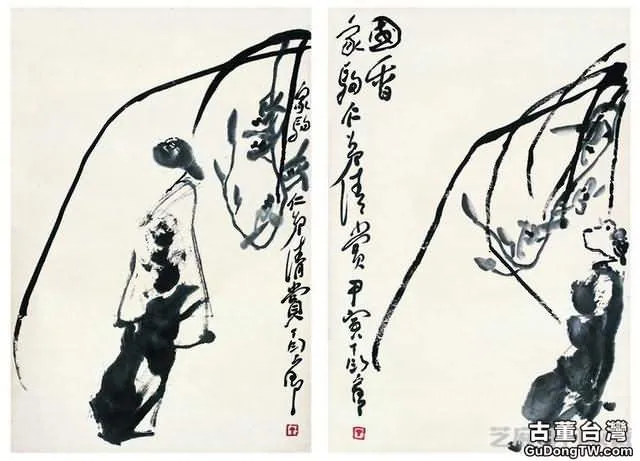 家駒仁弟清賞丁衍庸
國香
家駒仁弟清賞甲寅丁衍庸
古董台灣
GuDongTW.com